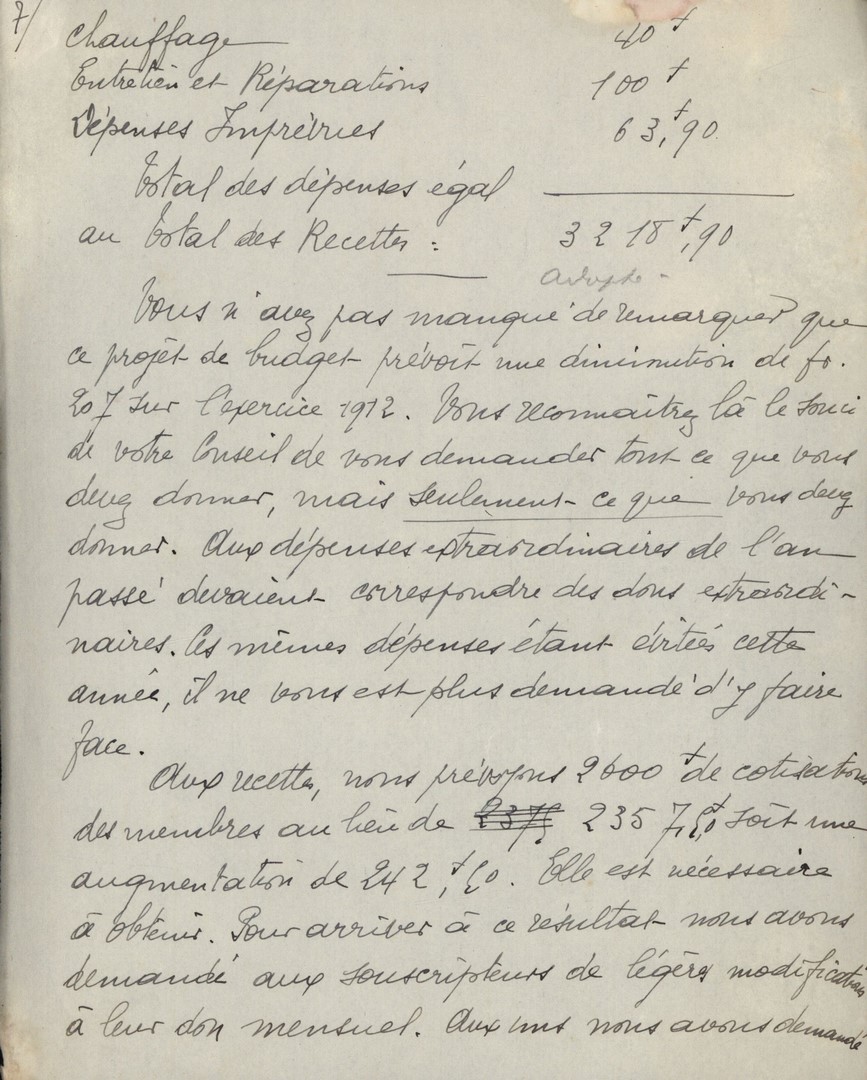 7/
Chauffage 40 f
Entretien et Réparations 100 f
Dépenses Imprévues 63,f90
Total des dépenses égal
au total des Recettes : 3218 f,90
adopté -
Vous n'avez pas manqué de remarquer que
ce projet de budget prévoit une diminution de fr.
207 sur l'exercice 1912. Vous reconnaîtrez là le souci
de votre Conseil de vous demander tout ce que vous
devez donner, mais seulement ce que vous devez
donner. Aux dépenses extraordinaires de l'an
passé devaient correspondre des dons extraordi-
naires. Ces mêmes dépenses étant évitées cette
année, il ne vous est plus demandé d'y faire
face.
Aux recettes, nous prévoyons 2600 f de cotisations
des membres au lieu de 2375 2357,f50 soit une
augmentation de 242,f50. Elle est nécessaire
à obtenir. Pour arriver à ce résultat nous avons
demandé aux souscripteurs de légères modifications
à leur don mensuel. Aux uns nous avons demandé